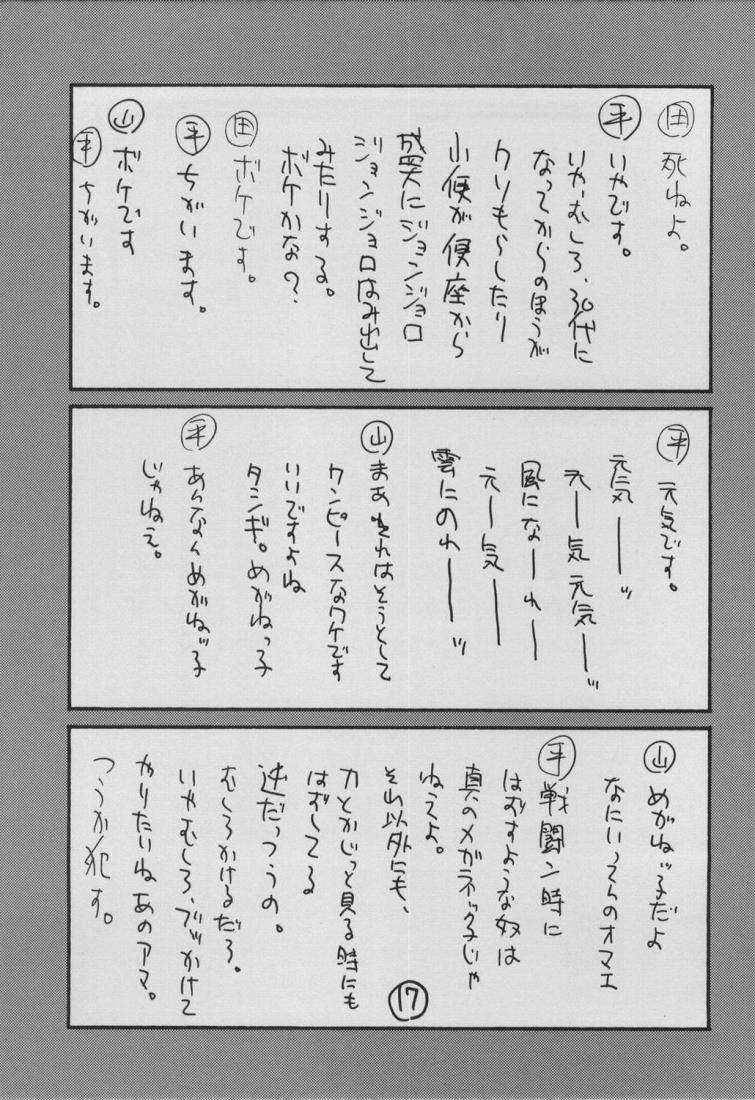 田 死ねよ。
平 いやです。
いや、むしろ、30代に
なってからのほうが
クソもらしたり
小便が便座から
盛大にジョンジョロ
ジョンジョロはみ出して
みたりする。
ボケかな?
田 ボケです。
平 ちがいます。
山 ボケです
平 ちがいます。
平 元気です。
元気ーーッ
元ー気元気ーッ
風になーれー
元ー気ー
雲にのれーーッ
山 まあそれはそうとして
ワンピースなワケです
いいですよね
タシギ。めがねっ子
平 あんなんめがねッ子
じゃねえ。
山 めがねッ子だよ
なにいってんのオマエ
平 戦闘ン時に
はずすような奴は
真のメガネッ子じゃ
ねえよ。
それ以外にも、
力とかじっと見る時にも
はずしてる
逆だっつうの。
むしろかけるだろ。
いやむしろ、ブッかけて
やりたいねあのアマ。
つうか犯す。
17